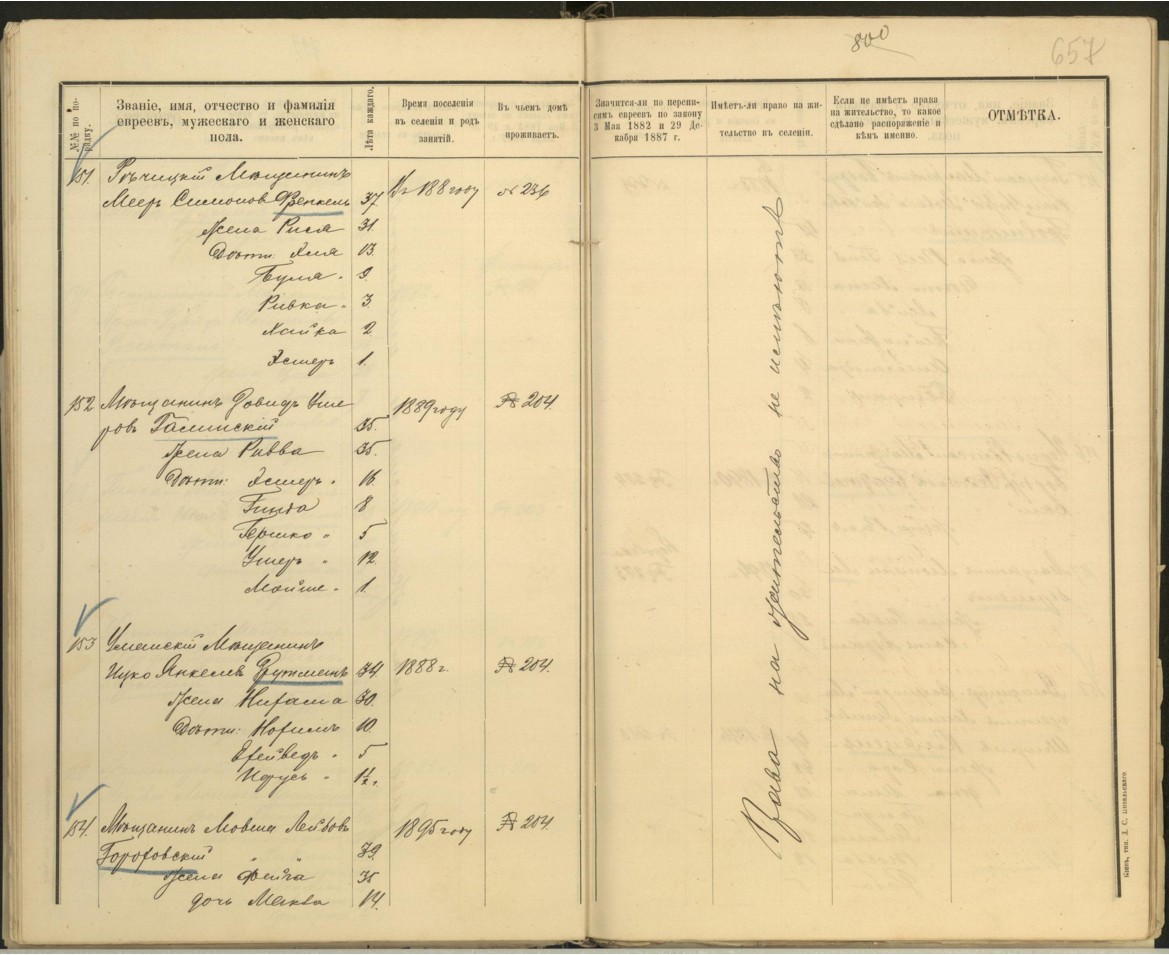 800
657
№№ по порядку.
Званіе, имя, отчество и фамилія
евреевъ, мужескаго и женскаго
пола.
Лѣта каждаго.
Время поселенія
въ селеніи и родъ
занятій.
Въ чьемъ домѣ
проживаетъ.
Значится-ли по перепи-
симъ евреевъ по закону
3 Мая 1882 и 29 Де-
кабря 1887 г.
Имѣетъ-ли право на жи-
тельство въ селеніи.
Если не имѣетъ права
на жительство, то какое
сдѣлано распоряженіе и
кѣмъ именно.
ОТМѢТКА.
151. Рѣчицкій Мѣщанинъ
Мееръ Симонов Френкель 37 188 году № 236
Жена Рися 31.
Дѣти: Хая 13.
9.
Ривка 3.
Хайка 2
Эстеръ 1.
152 Мѣщанинъ Давидъ Уше 1889 году № 204.
ровъ Галинскій 35.
Жена Ривва 35.
Дѣти: Эстеръ 16.
Гинда 8
Гершко " 5
Ушеръ " 12.
Мойше 1.
153 Уманскій Мѣщанинъ
Ицко Янкелев 34. 1888 г. № 204.
Жена Нихама 30.
Дѣти: 10.
5
1½.
154. Мѣщанинъ Мовша Лейбовъ 1895 году № 204
Гороховскій " " 39.
Жена Фейга 35
дочь Малка 14.
Права на жительство не имѣютъ
Кіевъ, тип.